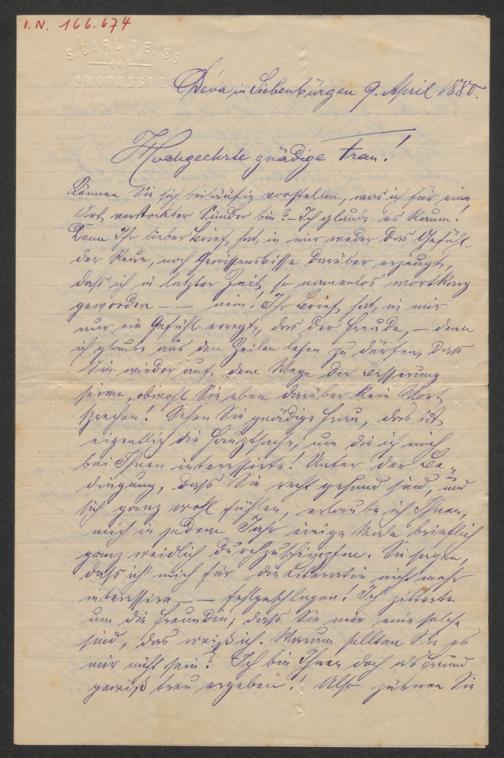 I. N. 166.674
S. CARL WEISS
PROFESSOR
Déva, in Siebenbürgen 9. April 1880.
Hochgeehrte gnädige Frau!
Können Sie sich beiläufig vorstellen, was ich für eine
Art verstockter Sünder bin? – Ich glaube es kaum!
Denn Ihr lieber Brief hat in mir weder das Gefühl
der Reue, noch Gewissensbisse darüber erzeugt,
dass ich in letzter Zeit so namenlos wortkarg
geworden – – nein! Ihr Brief hat in mir
nur ein Gefühl erregt, das der Freude, – denn
ich glaube aus den Zeilen lesen zu dürfen, dass
Sie wieder auf dem Wege der Besserung
seien, obwohl Sie eben darüber kein Wort
sprechen! Sehen Sie gnädige Frau, das ist
eigentlich die Hauptsache, um die ich mich
bei Ihnen interessire! Unter der Be-
dingung, dass Sie recht gesund sind, und
sich ganz wohl fühlen, erlaube ich Ihnen,
mich in jedem Jahr einige Male brieflich
ganz weidlich durchzuschimpfen. Sie sagen,
dass ich mich für die Literatin nicht mehr
interessire – fehlgeschlagen! Ich zitterte
um die Freundin; dass Sie mir eine solche
sind, das weiß ich. Warum sollten Sie es
mir nicht sein? Ich bin Ihnen doch als Freund
gewiß treu ergeben! Also zürnen Sie